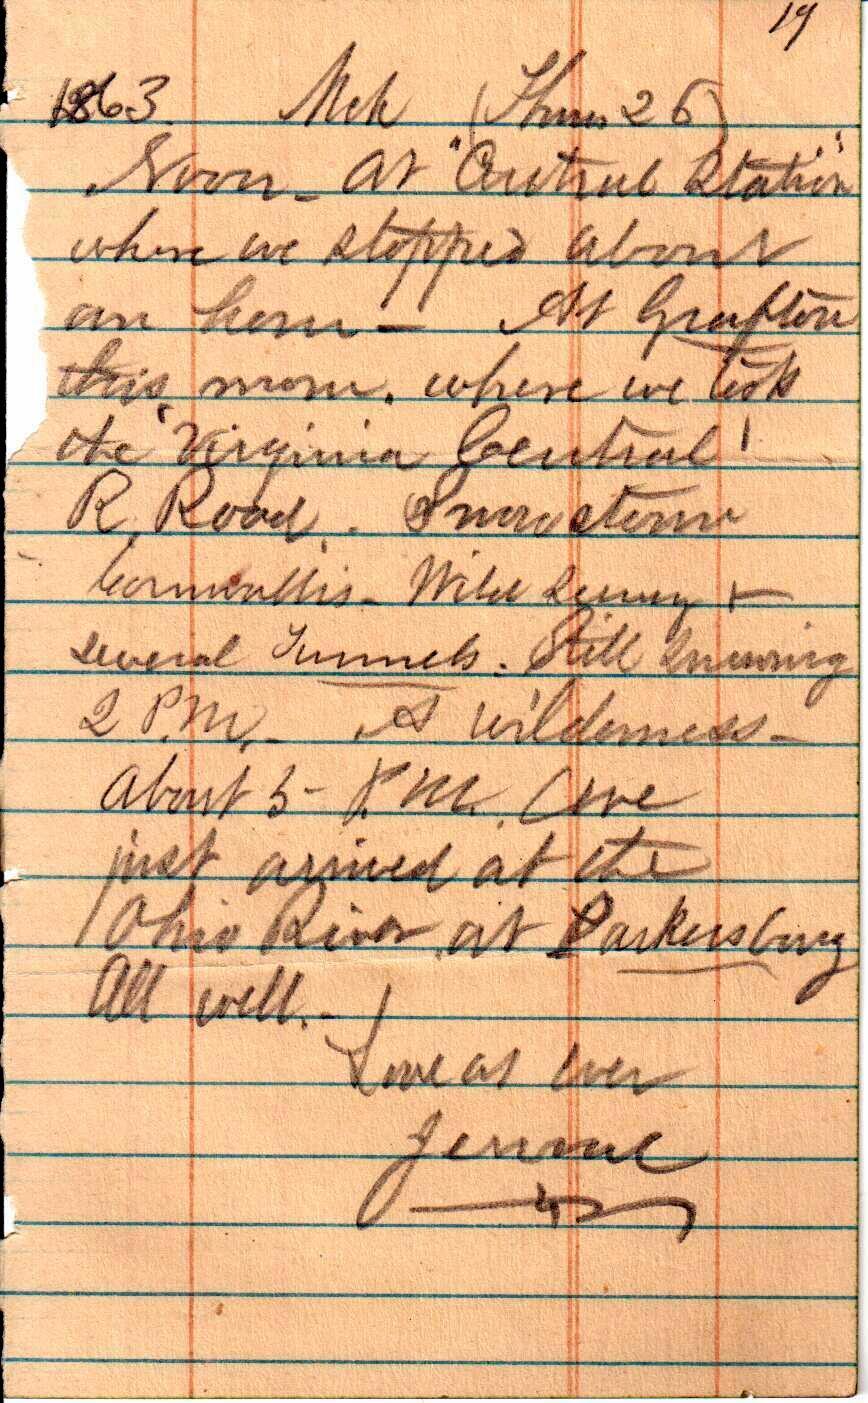 19
1863. Mch (Thurs 26)
Noon - At "Central Station"
where we stopped about
an hour - At Grafton
this morn. where we took
the 'Virginia Central'
R. Road. Snow storm
Cornwallis - Wild &
several Tunnels. Still snowing
2 P.M. - A wilderness -
About 5 - P.M. Have
just arrived at the
Ohio River at Parkersburg
All well. -
Love as ever
Jerome